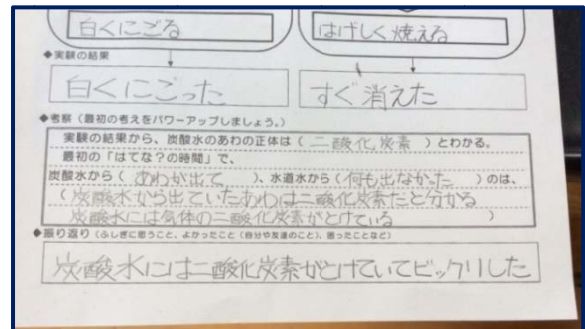 白くにごる
はげしく燃える
◆実験の結果
白くにごった
すぐ消えた
◆考察（最初の考えをパワーアップしましょう。）
実験の結果から、炭酸水のあわの正体は（ 二酸化炭素 ）とわかる。
最初の「はてな？の時間」で、
炭酸水から（ あわが出て ）、水道水から（ 何も出なかった ）のは、
（ 炭酸水から出ていたあわは二酸化炭素だと分かる
炭酸水には気体の二酸化炭素がとけている ）
◆振り返り（ふしぎに思うこと、よかったこと（自分や友達のこと）、困ったことなど）
炭酸水には二酸化炭素がとけていてビックリした